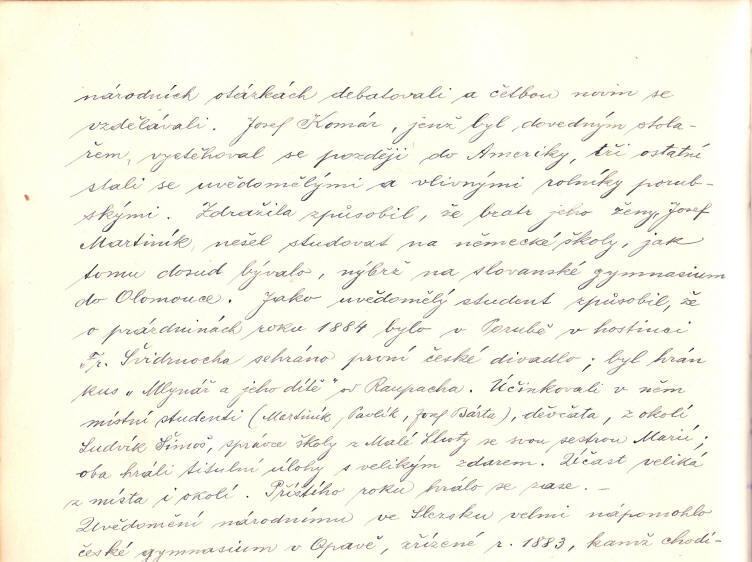 národních otázkách debatovali a četbou novin se
vzdělávali. Josef Komár, jenž byl dovedným stola-
řem, vystěhoval se později do Ameriky, tři ostatní
stali se uvědomělými a vlivnými rolníky porub-
skými. Zdražila způsobil, že bratr jeho ženy, Josef
Martiník, nešel studovat na německé školy, jak
tomu dosud bývalo, nýbrž na slovanské gymnasium
do Olomouce. Jako uvědomělý student způsobil, že
o prázdninách roku 1884 bylo v Porubě v hostinci
Fr. Švidrnocha sehráno první české divadlo; byl hrán
kus „Mlynář a jeho dítě" od Raupacha. Účinkovali v něm
místní studenti (Martiník, Pavlík, Josef Bárta), děvčata, z okolí
Ludvík Šimoš, správce školy z Malé Lhoty se svou sestrou Marií;
oba hráli titulní úlohy s velikým zdarem. Účast veliká
z místa i okolí. Příštího roku hrálo se zase. –
Uvědomění národnímu ve Slezsku velmi nápomohlo
české gymnasium v Opavě, zřízené r. 1883, kamž chodi-